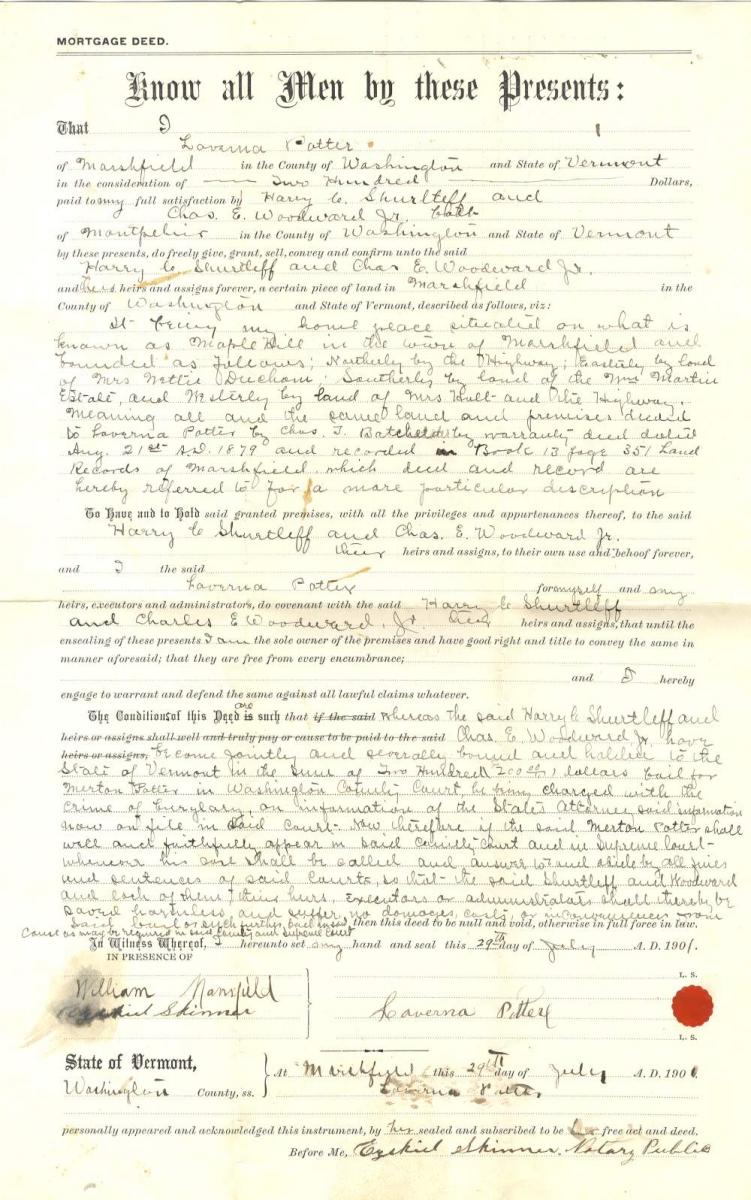 MORTGAGE DEED.
Know all Men by these Presents:
That I
Laverna Potter
of Marshfield in the County of Washington and State of Vermont
in the consideration of Two Hundred Dollars,
paid to my full satisfaction by Harry C Shurtleff and
Chas. E. Woodward Jr. both
of Montpelier in the County of Washington and State of Vermont
by these presents, do freely give, grant, sell, convey and confirm unto the said
Harry C Shurtleff and Chas E. Woodward Jr.
and heirs and assigns forever, a certain piece of land in Marshfield in the
County of Washington and State of Vermont, described as follows, viz:
It being my home place situated on what is
known as Maple Hill in the town of Marshfield and
bounded as follows; Northerly by the Highway; Easterly by land
of Mrs Nettie Ducham; Southerly by land of the Martin
Estate, and Westerly by land of Mrs Hall and the Highway.
Meaning all and the same land and premises deeded
to Laverna Potter by Chas. T. Batchelder by warranty deed dated
Aug. 21st A.D. 1879 and recorded in Book 13 page 351 Land
Records of Marshfield. which deed and record are
hereby referred to for a more particular description
To Have and to Hold said granted premises, with all the privileges and appurtenances thereof, to the said
Harry C Shurtleff and Chas. E. Woodward Jr.
their heirs and assigns, to their own use and behoof forever,
and I the said
Laverna Potter for myself and my
heirs, executors and administrators, do covenant with the said Harry C Shurtleff
and Charles E Woodward, Jr. their heirs and assigns, that until the
ensealing of these presents I am the sole owner of the premises and have good right and title to convey the same in
manner aforesaid; that they are free from every encumbrance;
and I hereby
engage to warrant and defend the same against all lawful claims whatever.
The Conditions of this Deed are is such that if the said Whereas the said Harry C Shurtleff and
heirs or assigns shall well and truly pay or cause to be paid to the said Chas. E. Woodward Jr. have
heirs or assigns, become jointly and severally bound and holden to the
State of Vermont in the sum of Two Hundred 200 dollars bail for
Merton Potter in Washington County Court, he being charged with the
crime of burglary, on information of the States Attorney said information
now on file in said Court. Now therefore if the said Merton Potter shall
well and faithfully appear in said County Court and in Supreme Court
whenever his said shall be called and answer to and abide by all fines
and sentences of said Courts, so that the said Shurtleff and Woodward
and each of them, their heirs, executors or administrators shall thereby be
saved harmless and suffer no damages, costs, or inconveniences from
said bail or such further bail in said then this deed be null and void, otherwise in full force in law.
cause as may be required in said County and Supreme Court
In Witness Whereof, I hereunto set my hand and seal this 29th day of July A. D. 1901.
IN PRESENCE OF
L. S.
William Mansfield
Ezekiel Skinner
Laverna Potter
L. S.
State of Vermont, At Marshfield this 29th day of July A. D. 1901
Washington County, ss. Laverna Potter
personally appeared and acknowledged this instrument, by her sealed and subscribed to be her free act and deed.
Before Me, Ezekiel Skinner, Notary Public